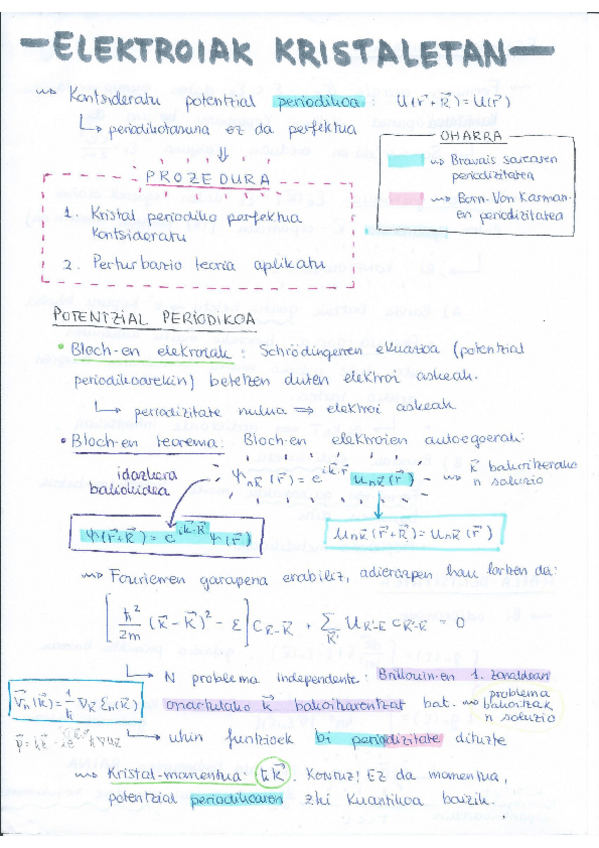 ELEKTROIAK KRISTALETAN
Kontsideratu potentzial periodikoa: U(r⃗+R⃗)=U(r⃗)
periodikotasuna ez da perfektua
OHARRA
Bravais sarearen
periodizitatea
Born-Von Karman-
en periodizitatea
PROZEDURA
1. Kristal periodiko perfektua
kontsideratu
2. Perturbazio teoria aplikatu
POTENTZIAL PERIODIKOA
• Bloch-en elektroiak: Schrödingerren ekuazioa (potentzial
periodikoarekin) betetzen duten elektroi askeak.
periodizitate nulua ⇒ elektroi askeak
• Bloch-en teorema: Bloch-en elektroien autoegoerak:
idazkera
baliokidea
ψnk⃗(r⃗) = e^{ik⃗·r⃗} unk⃗(r⃗)
k⃗ bakoitzerako
n soluzio
ψ(r⃗+R⃗) = e^{ik⃗·R⃗} ψ(r⃗)
unk⃗(r⃗+R⃗) = unk⃗(r⃗)
Fourierren garapena erabiliz, adierazpen hau lortzen da:
[ħ²/2m (k⃗-K⃗)² - ε] c_{k⃗-K⃗} + Σ_{K⃗'} U_{K⃗'-K⃗} c_{k⃗-K⃗'} = 0
N problema independente: Brillouin-en 1. zonaldean
onartutako k⃗ bakoitzarentzat bat.
problema
bakoitzak
n soluzio
v⃗n(k⃗) = 1/ħ ∇k⃗ εn(k⃗)
uhin funtzioek bi periodizitate dituzte
Kristal-momentua: ħk⃗. Kontuz! Ez da momentua,
potentzial periodikoaren zki kuantikoa baizik.